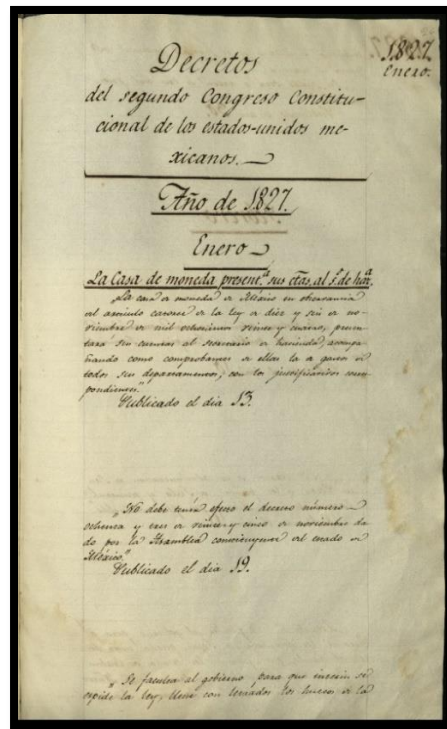 1827.
Enero.
Decretos
del segundo Congreso Constitu-
cional de los estados-unidos me-
xicanos.
Año de 1827.
Enero
La Casa de moneda present.ª sus ctas. al s.º de haª.
„La casa de moneda de México en observancia
del articulo catorce de la ley de diez y seis de no-
viembre de mil ochocientos veinte y cuatro, presen-
tara sus cuentas al secretario de hacienda, acompa-
ñando como comprobantes de ellas la de gastos de
todos sus departamentos, con los justificantes corres-
pondientes."
Publicado el dia 13.
„No debe tener efecto el decreto número
ochenta y tres de veinte y cinco de noviembre da-
do por la Asamblea constituyente del estado de
México."
Publicado el dia 19.
„Se faculta al gobierno para que interin se
espide la ley, llene con letrados los huecos de la